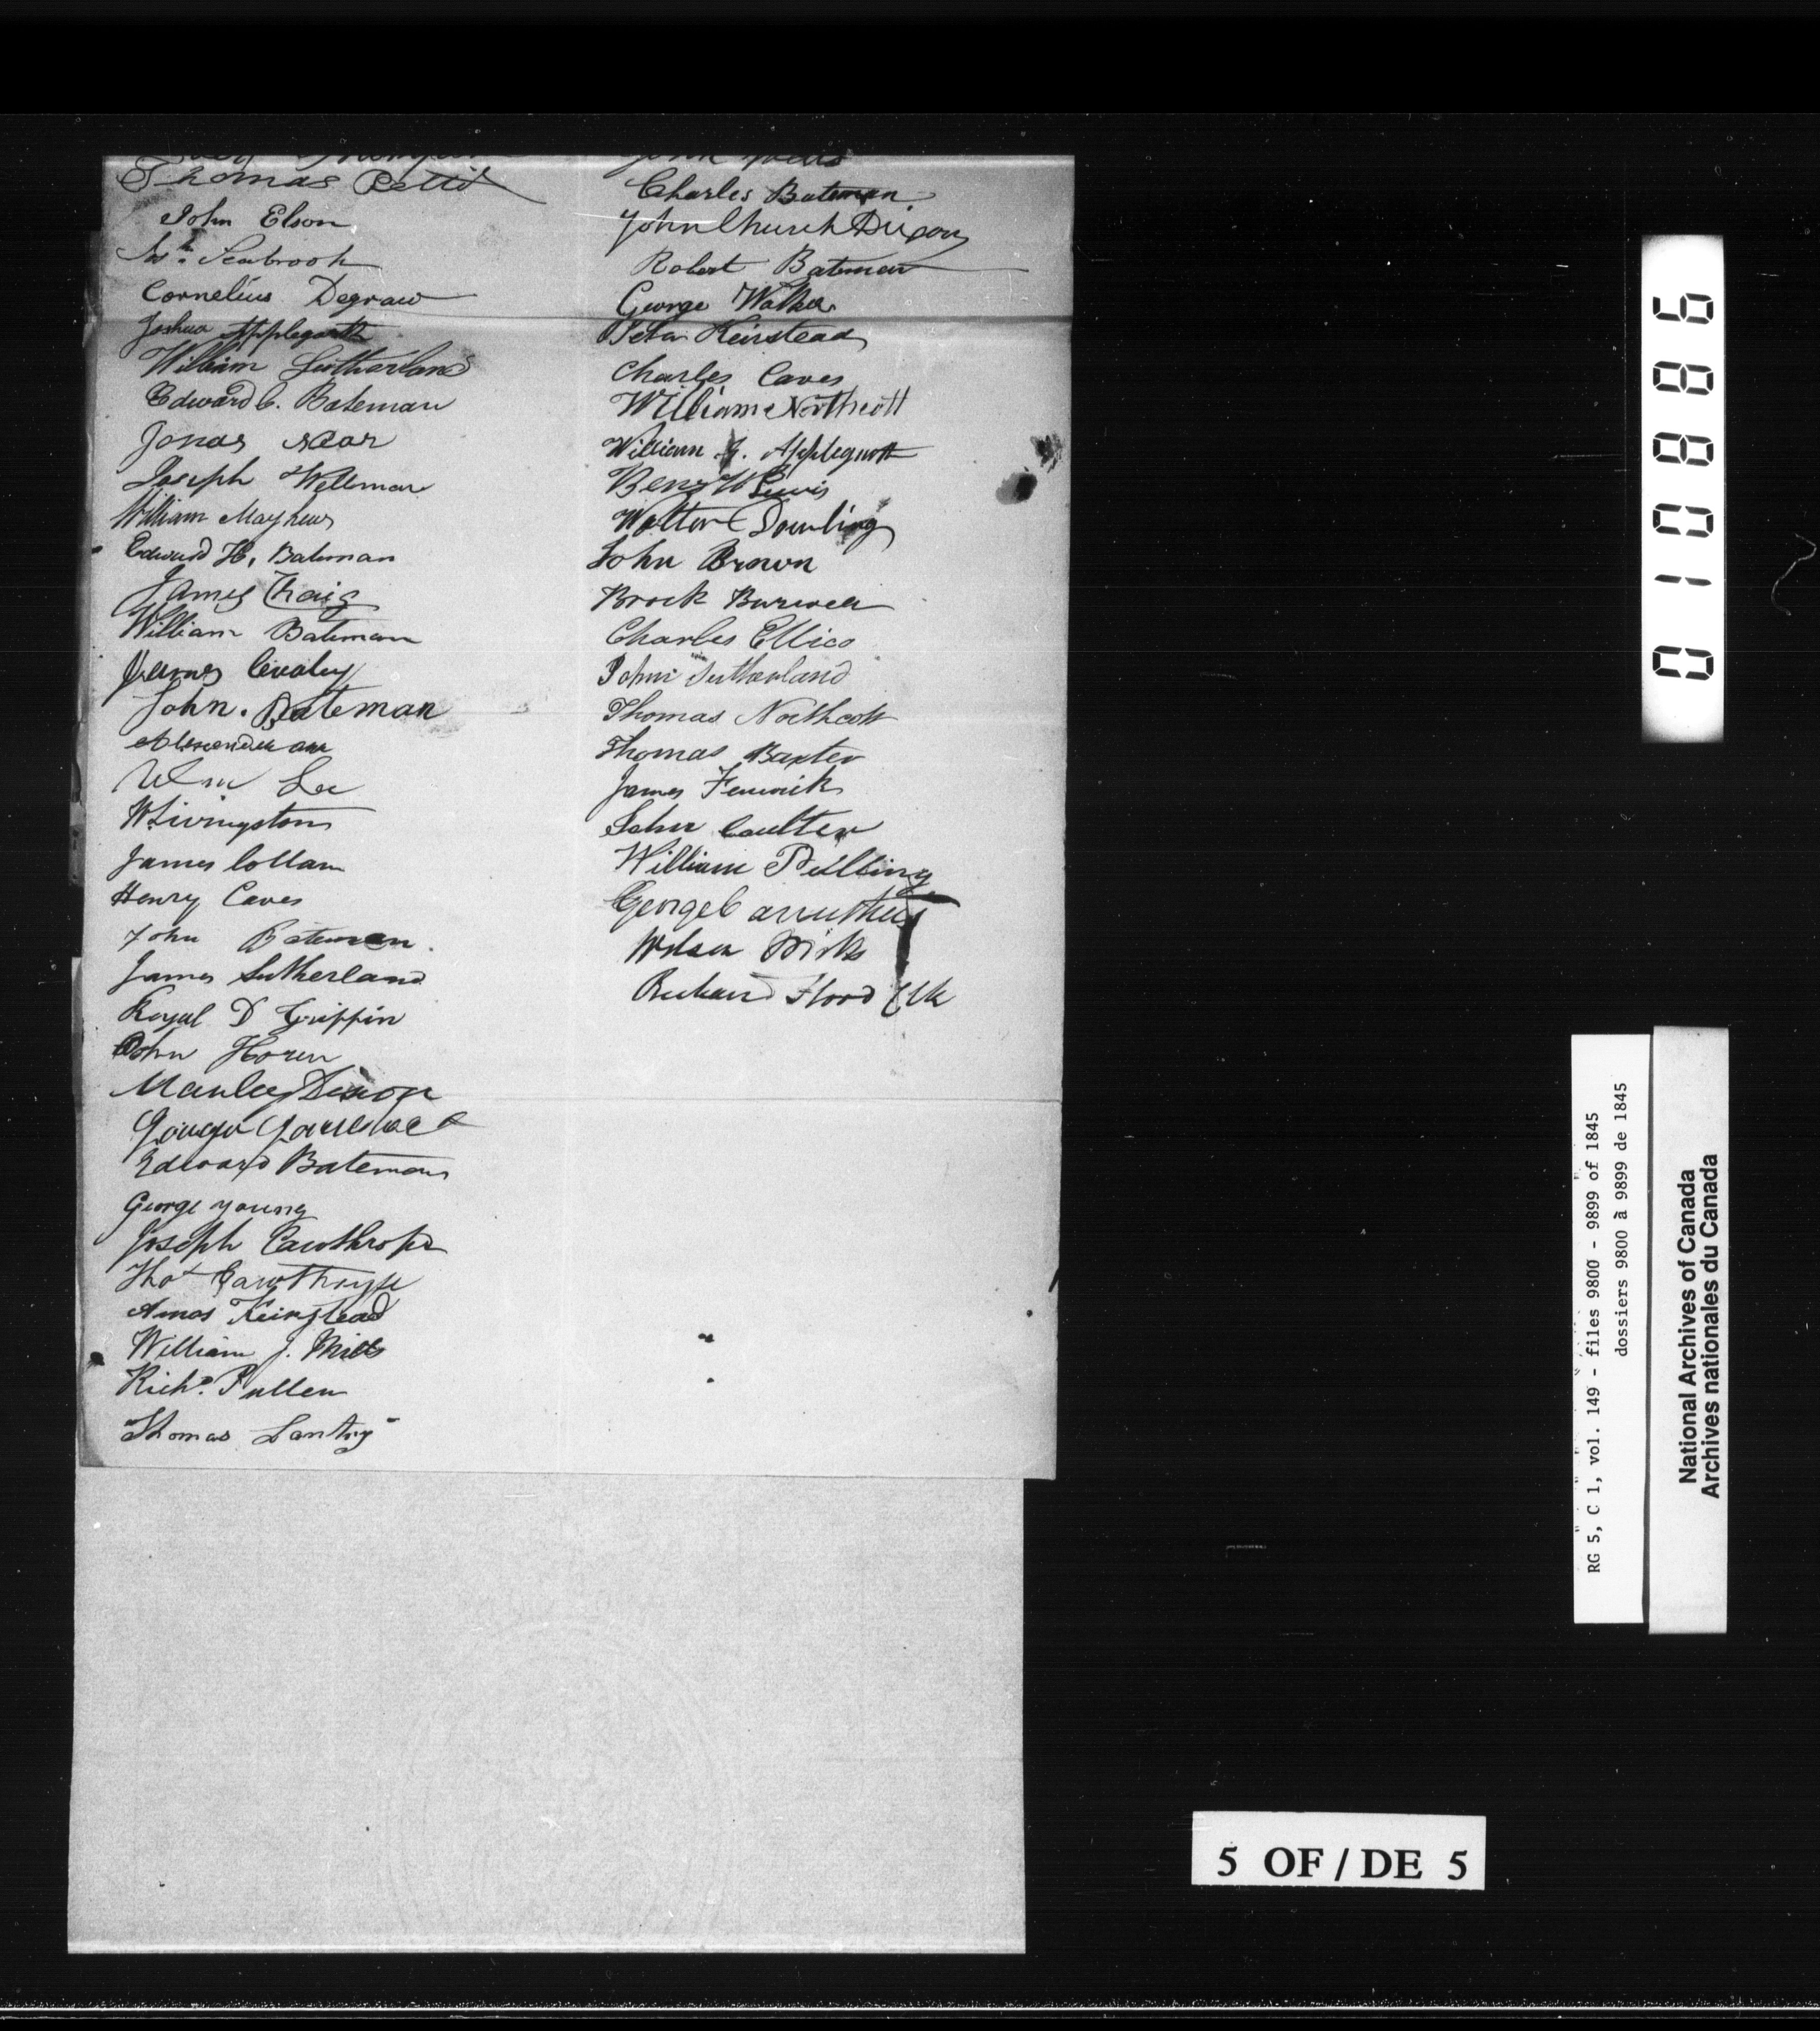 Thomas Pettit
John Elson
Seabrook
Cornelius Degraw
Joshua Applegarth
William Sutherland
Edward C. Bateman
Jonas
Joseph Wellman
William Mayhew
Edward H. Bateman
James Craig
William Bateman
James
John. Bateman
Wm Lee
W. Livingston
James Collan
Henry Caves
John Bateman.
James Sutherland
Royal D Griffin
John Horen
Manley Dixon
Edward Bateman
George young
Joseph Cawthrope
Thos Cawthrope
Amos Keirstead
William J. Mills
Richd. Pullen
Thomas Lantry
John
Charles Bateman
John Church Dixon
Robert Bateman
George Walker
Peter Keirstead
Charles Caves
William Northcott
William J. Applegarth
Benj W Lewis
Walter Dowling
John Brown
Brock Burwell
Charles Ellico
John Sutherland
Thomas Northcott
Thomas Baxter
James Fenwick
John Coulter
William Pulling
George Carruthers
Wilson Mirks
Richard Flood Clk
010886
RG 5, C 1, vol. 149 - files 9800 - 9899 of 1845
dossiers 9800 à 9899 de 1845
National Archives of Canada
Archives nationales du Canada
5 OF / DE 5